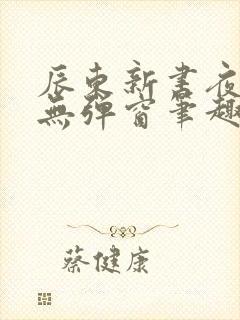 辰東新書夜
無彈窗筆趣
蔡健康